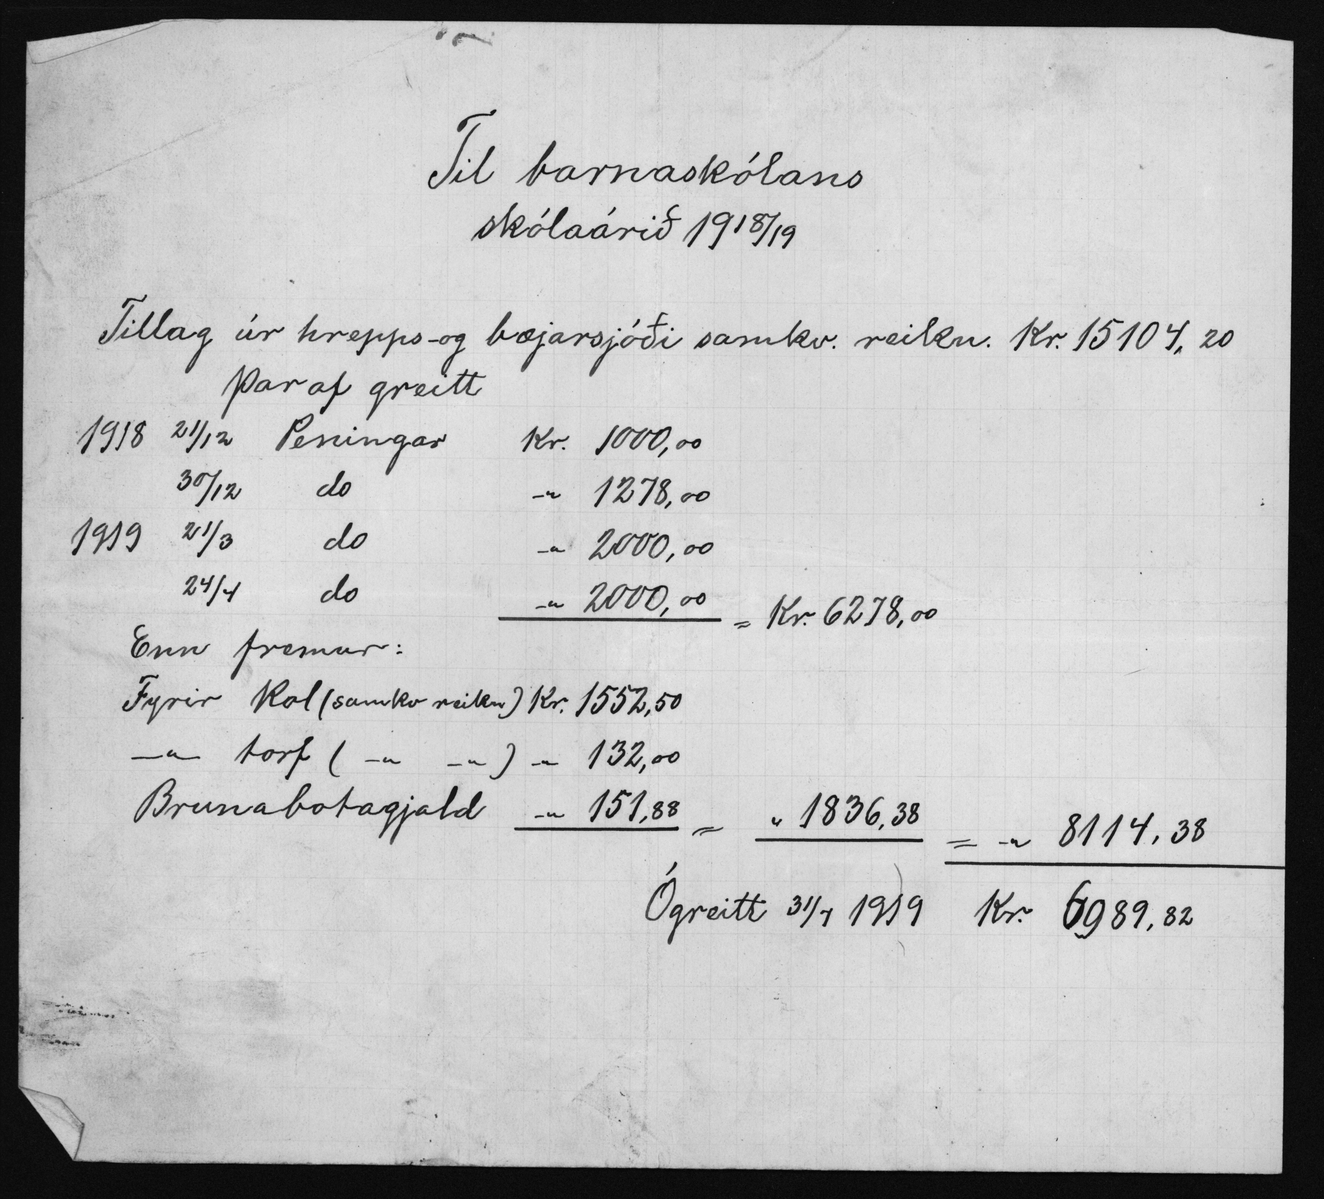 Til barnaskólans
skólaárið 1918/19
Tillag úr hrepps-og bæjarsjóði samkv. reikn. Kr. 15104,20
Þar af greitt
1918 21/12 Peningar Kr. 1000,00
30/12 do -"- 1278,00
1919 21/3 do -"- 2000,00
24/4 do -"- 2000,00 = Kr. 6278,00
Enn fremur:
Fyrir Kol (samkv reikn) Kr. 1552,50
-"- torf ( -"- -"- ) -"- 132,00
Brunabotagjald -"- 151,88 = " 1836,38 = -"- 8114,38
Ógreitt 31/7 1919 Kr. 6989,82